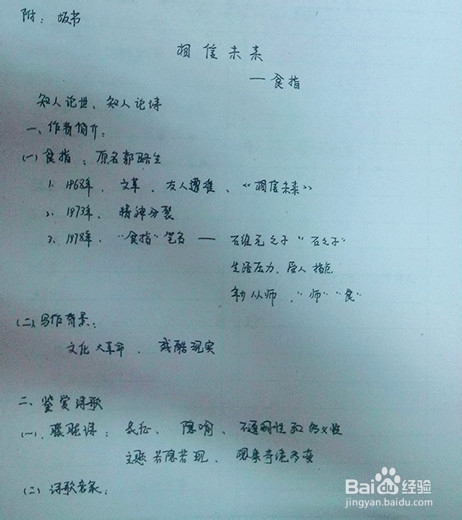 附：板书
相信未来
——食指
知人论世、知人论诗
一、作者简介：
(一) 食指：原名郭路生
1. 1968年，文革，友人遭难，《相信未来》
2. 1973年，精神分裂
3. 1978年，“食指”笔名——  之子 “石之子”
生活压力，后人指点
从师，“师”“食”
(二) 写作背景：
文化大革命、残酷现实
二、鉴赏诗歌
(一) 朦胧诗：象征、隐喻、不透明性和多义性
主题若隐若现，
(二) 诗歌意象：
Baidu经验
jingyan.baidu.com